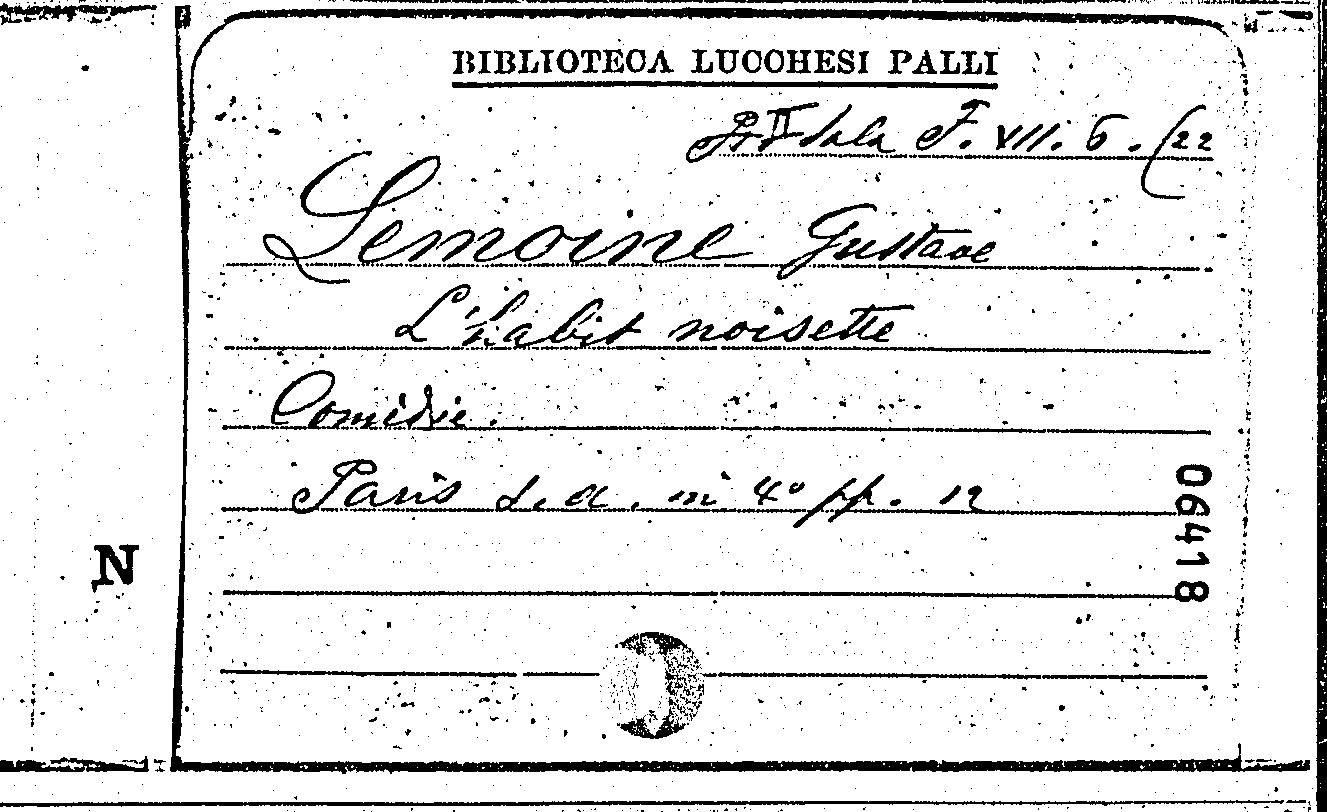 BIBLIOTECA LUCCHESI PALLI
II Sala F. VII. 6. (22
Lemoine Gustave
L'habit noisette
Comédie.
Paris s. a. in 4º pp. 12
06418
N